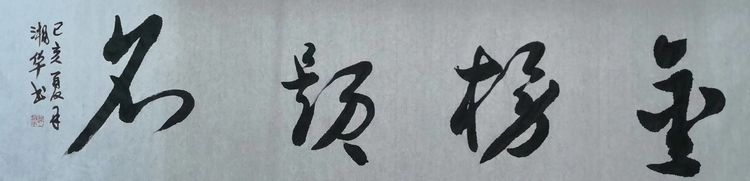 金榜题名
己亥夏月
湘华书